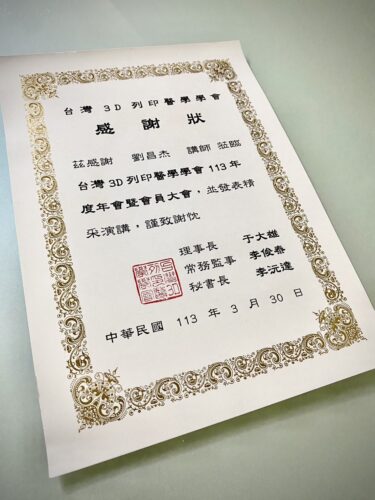 台灣 3D 列印醫學學會
感謝狀
茲感謝 劉昌杰 講師 蒞臨
台灣 3D 列印醫學學會 113 年
度年會暨會員大會，並發表精
采演講，謹致謝忱
理事長 于大雄
常務監事 李俊泰
秘書長 李沅達
中華民國 113 年 3 月 30 日